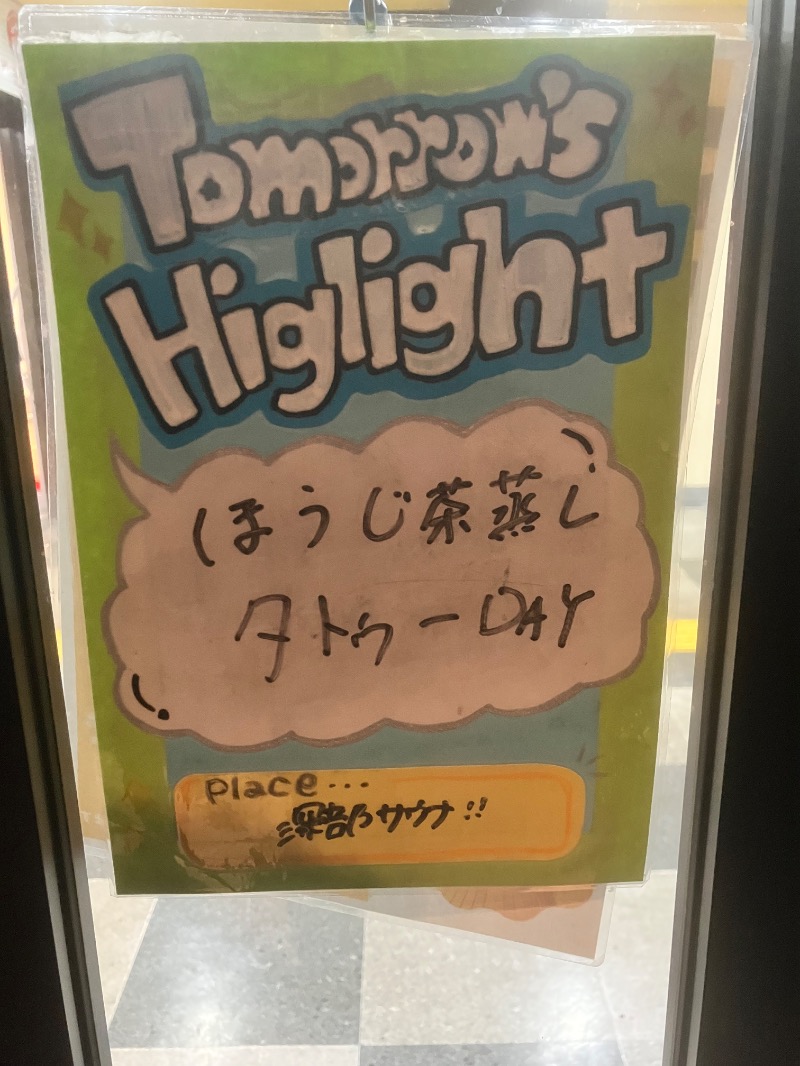 Tomorrow's
Higlight
ほうじ茶蒸し
タトゥーDAY
place…
深部サウナ!!